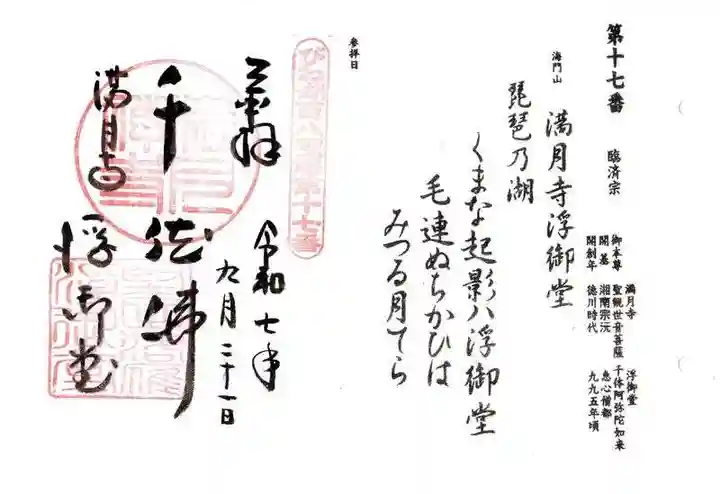 第十七番 臨済宗
御本尊
開基
開創年
満月寺
聖観世音菩薩
湘南宗沅
徳川時代
浮御堂
千体阿弥陀如来
恵心僧都
九九五年頃
海門山
満月寺浮御堂
琵琶乃湖
くまな起影八浮御堂
毛連ぬちかひは
みつる月てら
参拝日
第十七番
奉拝
令和七年
九月二十一日
千体佛
浮御堂
満月寺